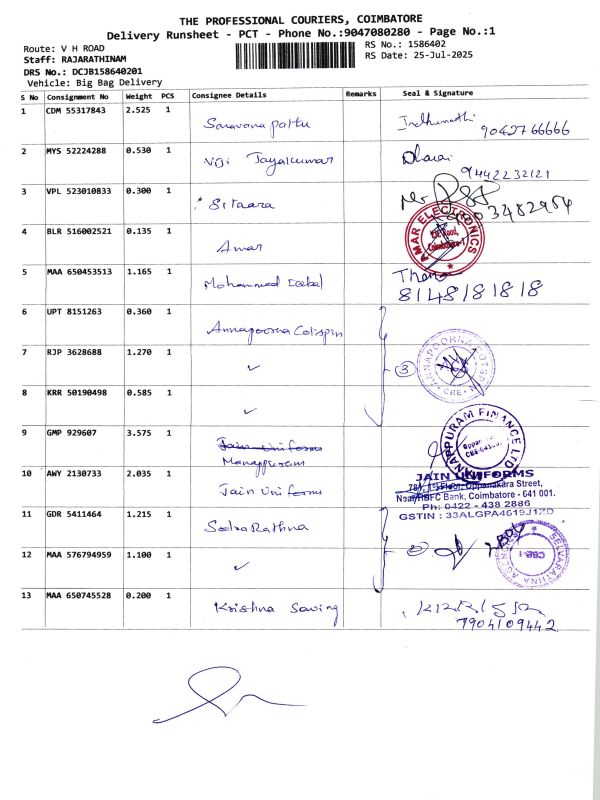 THE PROFESSIONAL COURIERS, COIMBATORE
Delivery Runsheet - PCT - Phone No.:9047080280 - Page No.:1
Route: V H ROAD
RS No.: 1586402
Staff: RAJARATHINAM
RS Date: 25-Jul-2025
DRS No.: DCJB158640201
Vehicle: Big Bag Delivery
S No Consignment No Weight PCS Consignee Details Remarks Seal & Signature
1 CDM 55317843 2.525 1 Saravana pattu
9042766666
2 MYS 52224288 0.530 1 Viji Jayakumar
9442232121
3 VPL 523010833 0.300 1 Sitaara
4 BLR 516002521 0.135 1 Amar
AMAR ELECTRONICS
Coimbatore-1
5 MAA 650453513 1.165 1 Mohammed Iqbal
8148181818
6 UPT 8151263 0.360 1 Annapoorna Cotspin
7 RJP 3628688 1.270 1 ✓ 3
ANNAPOORNA COTSPIN
CBE
8 KRR 50190498 0.585 1 ✓
9 GMP 929607 3.575 1 Jain Uniforms
Manappuram
MANAPPURAM FINANCE LTD
10 AWY 2130733 2.035 1 Jain Uniforms
JAIN UNIFORMS
Oppanakara Street,
HSFC Bank, Coimbatore - 641 001.
Ph: 0422 - 438 2886
GSTIN : 33ALGPA4619J1ZD
11 GDR 5411464 1.215 1 SelvaRathna
12 MAA 576794959 1.100 1 ✓ 2
SELVARATHNA AGENCIES
CBE-1
13 MAA 650745528 0.200 1 Krishna Sawing
7904109442